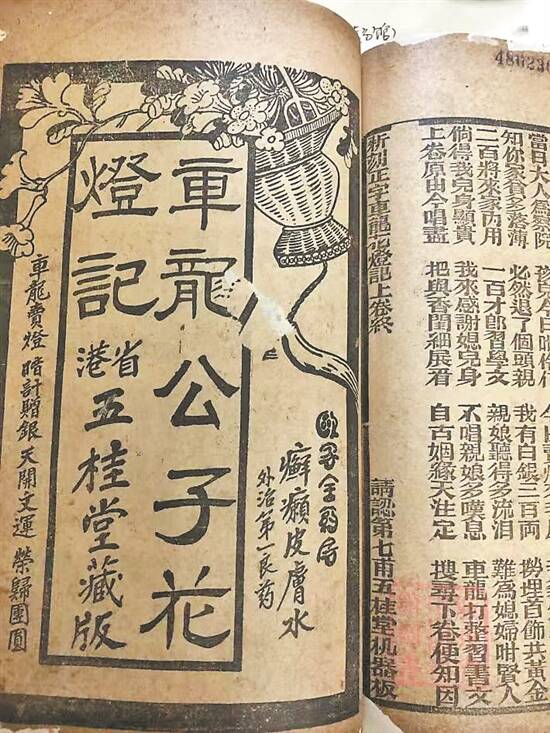 486236
當日大人為察院
知你家貧多落薄 必然退了個頭親 我有白銀三百兩 勞埋首飾共黃金
二百將來家內用 一百才郎習學文 親娘聽得多流泪 難為媳婦咁賢人
倘得我兒身顯貴 我來感謝媳兒身 不唱親娘多嘆息 車龍打整習書文
上卷原由今唱盡 把與香閨細展看 自古姻緣天注定 搜尋下卷便知因
新刻正字車龍花燈記上卷終 請認第七甫五桂堂机器板
車龍公子花
燈記
省港五桂堂藏版
癬癩皮膚水
外治第一良药
車龍賣燈 暗計贈銀 天開文運 榮歸團圓